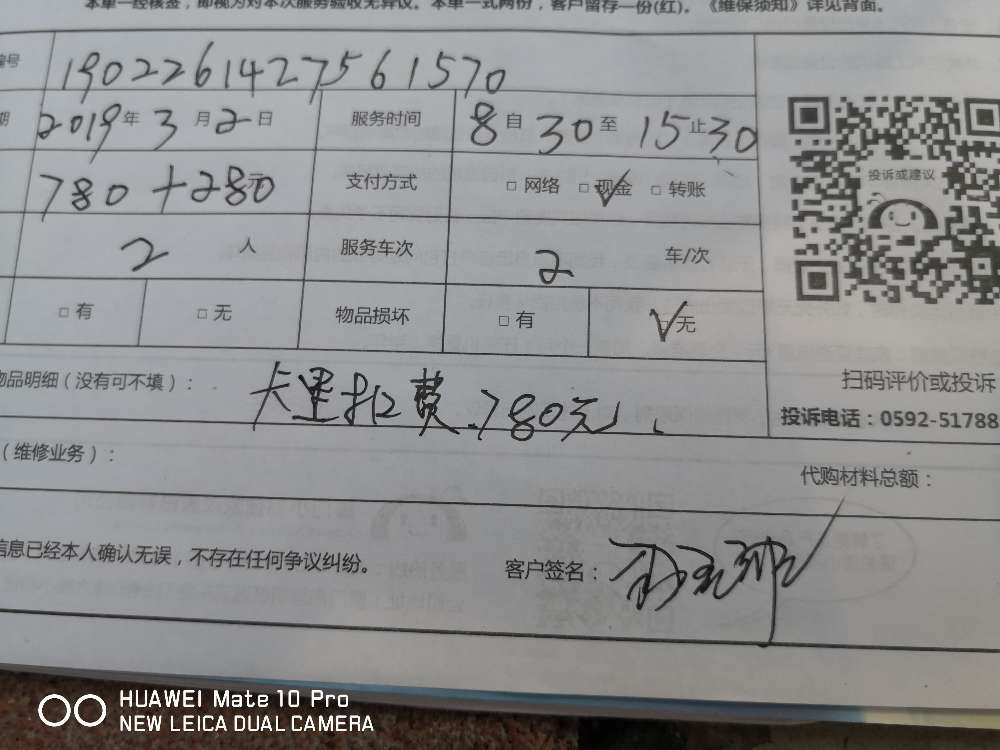 本单一经核签，即视为对本次服务验收无异议。本单一式两份，客户留存一份(红)。《维保须知》详见背面。
编号 1902261427561570
期 2019年3月2日 服务时间 8自30至15止30
780+280元 支付方式 □网络 □现金 □转账
投诉或建议
2人 服务车次 2车/次
□有 □无 物品损坏 □有 □无
扫码评价或投诉
物品明细（没有可不填）： 卡里扣费780元
投诉电话：0592-51788
（维修业务）：
代购材料总额：
信息已经本人确认无误，不存在任何争议纠纷。 客户签名：
HUAWEI Mate 10 Pro
NEW LEICA DUAL CAMERA